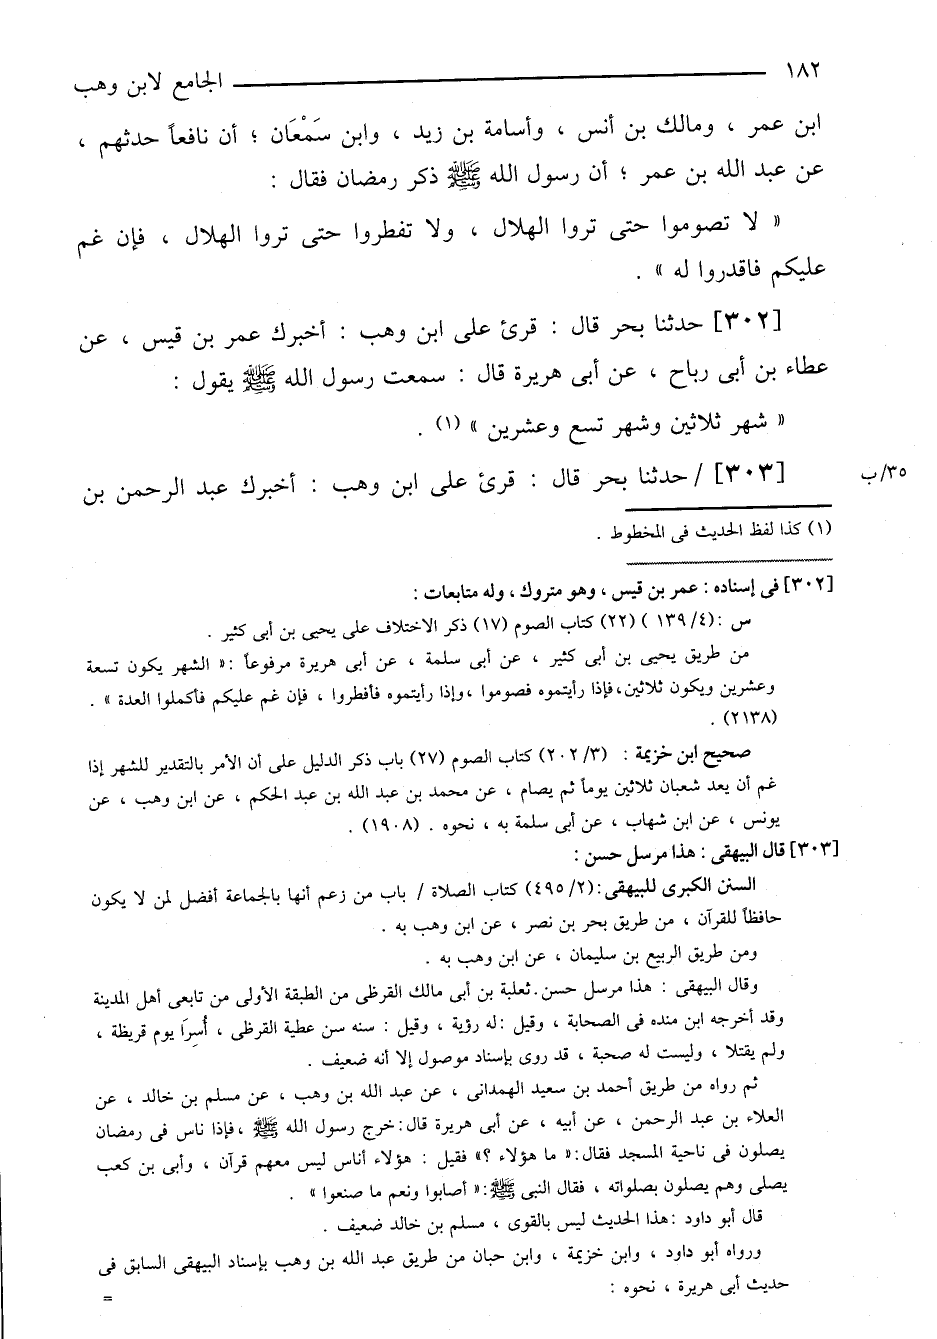 ١٨٢ ــــــــــ الجامع لابن وهب
ابن عمر ، ومالك بن أنس ، وأسامة بن زيد ، وابن سَمْعَان ؛ أن نافعاً حدثهم ،
عن عبد الله بن عمر ؛ أن رسول الله ﷺ ذكر رمضان فقال :
« لا تصوموا حتى تروا الهلال ، ولا تفطروا حتى تروا الهلال ، فإن غم
عليكم فاقدروا له » .
[٣٠٢] حدثنا بحر قال : قرئ على ابن وهب : أخبرك عمر بن قيس ، عن
عطاء بن أبى رباح ، عن أبى هريرة قال : سمعت رسول الله ﷺ يقول :
« شهر ثلاثين وشهر تسع وعشرين » (١) .
[٣٠٣] / حدثنا بحر قال : قرئ على ابن وهب : أخبرك عبد الرحمن بن
٣٥/ب
(١) كذا لفظ الحديث فى المخطوط .
[٣٠٢] فى إسناده : عمر بن قيس ، وهو متروك ، وله متابعات :
س :(٤/ ١٣٩ ) (٢٢) كتاب الصوم (١٧) ذكر الاختلاف على يحيى بن أبى كثير .
من طريق يحيى بن أبى كثير ، عن أبى سلمة ، عن أبى هريرة مرفوعاً :« الشهر يكون تسعة
وعشرين ويكون ثلاثين،فإذا رأيتموه فصوموا ،وإذا رأيتموه فأفطروا ، فإن غم عليكم فأكملوا العدة » .
(٢١٣٨) .
صحيح ابن خزيمة : (٣/ ٢٠٢) كتاب الصوم (٢٧) باب ذكر الدليل على أن الأمر بالتقدير للشهر إذا
غم أن يعد شعبان ثلاثين يوماً ثم يصام ، عن محمد بن عبد الله بن عبد الحكم ، عن ابن وهب ، عن
يونس ، عن ابن شهاب ، عن أبى سلمة به ، نحوه . (١٩٠٨) .
[٣٠٣] قال البيهقى : هذا مرسل حسن :
السنن الكبرى للبيهقى:(٢/ ٤٩٥) كتاب الصلاة / باب من زعم أنها بالجماعة أفضل لمن لا يكون
حافظاً للقرآن ، من طريق بحر بن نصر ، عن ابن وهب به .
ومن طريق الربيع بن سليمان ، عن ابن وهب به .
وقال البيهقى : هذا مرسل حسن.ثعلبة بن أبى مالك القرظى من الطبقة الأولى من تابعى أهل المدينة
وقد أخرجه ابن منده فى الصحابة ، وقيل :له رؤية ، وقيل : سنه سن عطية القرظى ، أُسِرَا يوم قريظة ،
ولم يقتلا ، وليست له صحبة ، قد روى بإسناد موصول إلا أنه ضعيف .
ثم رواه من طريق أحمد بن سعيد الهمدانى ، عن عبد الله بن وهب ، عن مسلم بن خالد ، عن
العلاء بن عبد الرحمن ، عن أبيه ، عن أبى هريرة قال:خرج رسول الله ﷺ ،فإذا ناس فى رمضان
يصلون فى ناحية المسجد فقال:« ما هؤلاء ؟» فقيل : هؤلاء أناس ليس معهم قرآن ، وأبى بن كعب
يصلى وهم يصلون بصلواته ، فقال النبى ﷺ:« أصابوا ونعم ما صنعوا » .
قال أبو داود :هذا الحديث ليس بالقوى ، مسلم بن خالد ضعيف .
ورواه أبو داود ، وابن خزيمة ، وابن حبان من طريق عبد الله بن وهب بإسناد البيهقى السابق فى
حديث أبى هريرة ، نحوه :
=